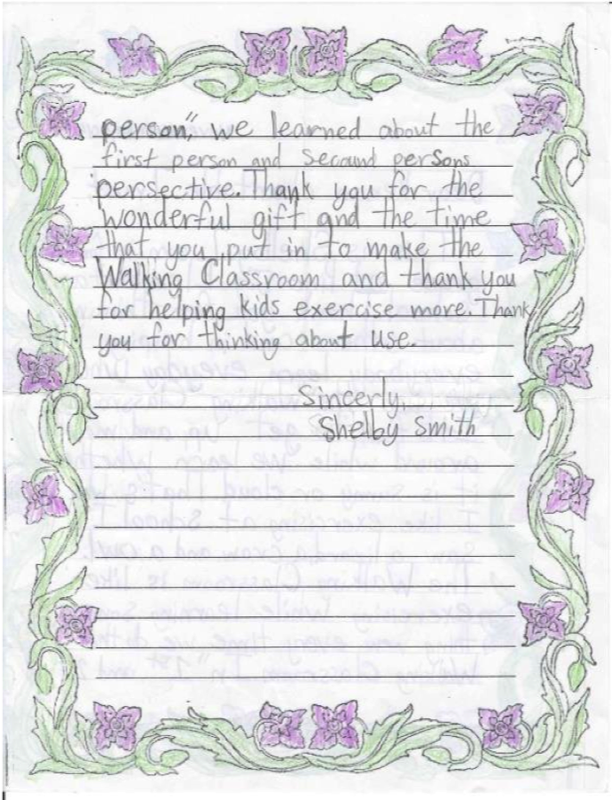 person," we learned about the
first person and Secaund persons
persective. Thank you for the
wonderful gift and the time
that you put in to make the
Walking Classroom and thank you
for helping kids exercise more. Thank
you for thinking about use.
Sincerly,
Shelby Smith